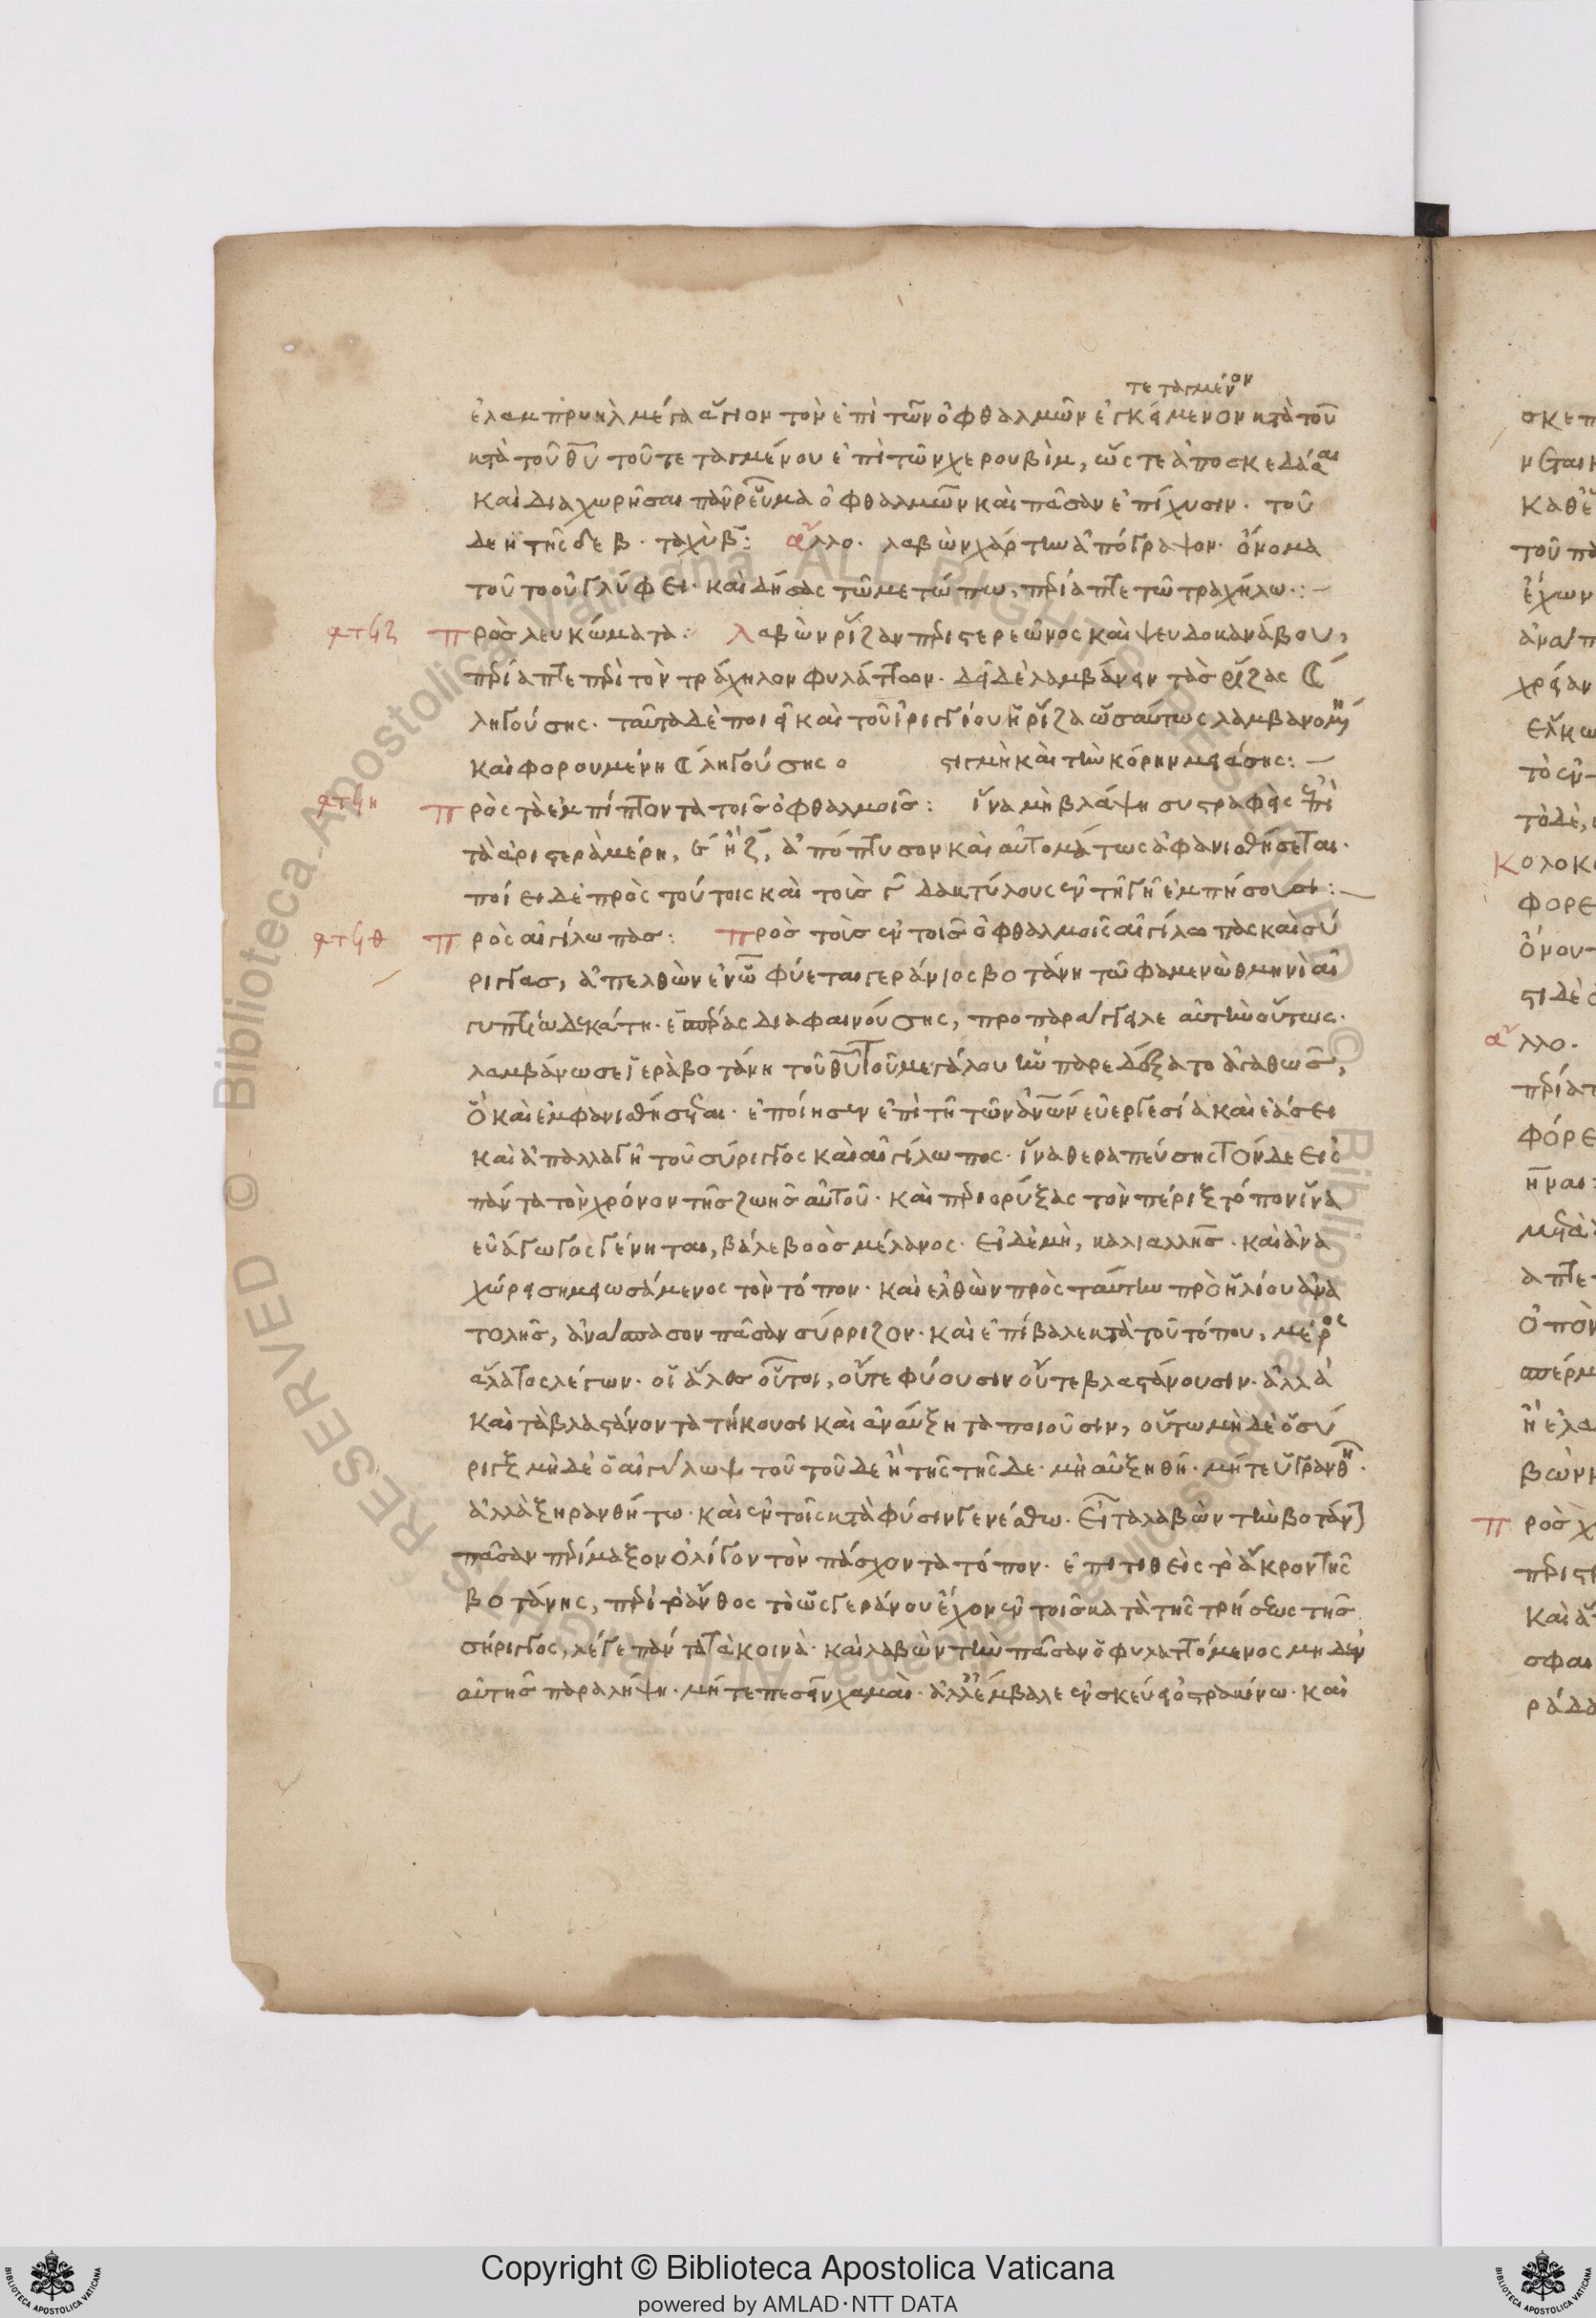 τεταγμένον
ἐλαμπρυηλ μέγα ἅγιον τὸν ἐπὶ τῶν ὀφθαλμῶν ἐγκείμενον κτὰ τοῦ
κτὰ τοῦ θῦ τοῦ τεταγμένου ἐπὶ τῶν χερουβὶμ, ὥστε ἀποσκεδάσαι
καὶ διαχωρῆσαι πᾶν ῥεῦμα ὀφθαλμῶν καὶ πᾶσαν ἐπίχυσιν. τοῦ
δε ἢ τῆς δε β. ταχὺ β: ἄλλο. λαβὼν χάρτην ἀπόγραψον. ὄνομα
τοῦτο οὐγλύφει. καὶ δήσας τῶ μετώπω, πρίαπτε τῶ τραχήλω.:–
ϡτϟζ Πρὸς λευκώματα: Λαβὼν ῥίζαν πριστερεῶνος καὶ ψευδοκανάβου,
πρίαπτε πρὶ τὸν τράχηλον φυλάττων. δεῖ δὲ λαμβάνειν τὰς ῥίζας ☾
ληγούσης. ταῦτα δὲ ποιεῖ καὶ τοῦ ἠριγγίου ἡ ρίζα ὡσαύτως λαμβανομένη
καὶ φορουμένη ☾ ληγούσης ο στιγμὴ καὶ τὴν κόρην μειώσης:–
ϡτϟη Πρὸς τὰ ἐμπίπτοντα τοῖς ὀφθαλμοῖς: ἵνα μὴ βλάψη συστραφεὶς ἐπὶ
τὰ ἀριστερὰ μέρη, ϛ´ ἢ ζ´, ἀπόπτυσον καὶ αὐτομάτως ἀφανισθήσεται.
ποίει δὲ πρὸς τούτοις καὶ τοῖς γ δακτύλους ἐν τῇ γῇ ἐμπήσουσι:–
ϡτϟθ Πρὸς αἰγίλωπας: Πρὸς τοῖς ἐν τοῖς ὀφθαλμοῖς αἰγίλωπας καὶ σύ
ριγγας, ἀπελθὼν ἐν ὧ φύεται γεράνιος βοτάνη τῶ φαμενὼθ μηνὶ αἰ
γυπτίω δεκάτη. ἑσπέρας διαφαινούσης, προπαράγγειλε αὐτὴν οὕτως.
λαμβάνω σε ἱερὰ βοτάνη τοῦ θῦ τοῦ μεγάλου ἣν παρεδέξατο ἀγαθῶς,
ὃ καὶ ἐμφανισθήσεται. ἐποίησεν ἐπὶ τῇ τῶν ἀνῶν εὐεργεσία καὶ ἐάσει
καὶ ἀπαλλαγῇ τοῦ σύριγγος καὶ αἰγίλωπος. ἵνα θεραπεύσης τόνδε εἰς
πάντα τὸν χρόνον τῆς ζωῆς αὐτοῦ. καὶ πριορύξας τὸν πέριξ τόπον ἵνα
εὐάγωγος γένηται, βάλε βοὸς μέλανος. εἰ δὲ μὴ, καλιαλλῆς. καὶ ἀνα
χώρει σημειωσάμενος τὸν τόπον. καὶ ἐλθὼν πρὸς ταύτην πρὸ ἡλίου ἀνα
τολῆς, ἀνάσπασον πᾶσαν σύρριζον. καὶ ἐπίβαλε κτὰ τοῦ τόπου, μέρος
ἅλατος λέγων. οἱ ἅλες οὗτοι, οὔτε φύουσιν οὔτε βλαστάνουσιν. ἀλλὰ
καὶ τὰ βλαστάνοντα τήκουσι καὶ ἀναύξητα ποιοῦσιν, οὕτω μὴ δὲ ὁ σύ
ριγξ μὴ δὲ ὁ αἰγίλωψ τοῦ τοῦδε ἢ τῆς τῆσδε. μὴ αὐξηθῇ. μήτε ὑγρανθῇ.
ἀλλὰ ξηρανθήτω. καὶ ἐν τοῖς κτὰ φύσιν γενέσθω. εἶτα λαβὼν τὴν βοτάνην
πᾶσαν πρίμαξον ὀλίγον τὸν πάσχοντα τόπον. ἐπιτιθεὶς τὸ ἄκρον τῆς
βοτάνης, πρὶ τὸ ἄνθος τὸ ὡς γεράνου ἔχον ἐν τοῖς κατὰ τῆς τρήσεως τῆς
σήριγγος, λέγε πάντα τὰ κοινά. καὶ λαβὼν τὴν πᾶσαν ὁ φυλαττόμενος μηδὲν
αὐτῆς παραλήψη. μήτε πεσεῖν χαμαὶ. ἀλλ' ἔμβαλε ἐν σκεύει ὀστρακίνω. καὶ